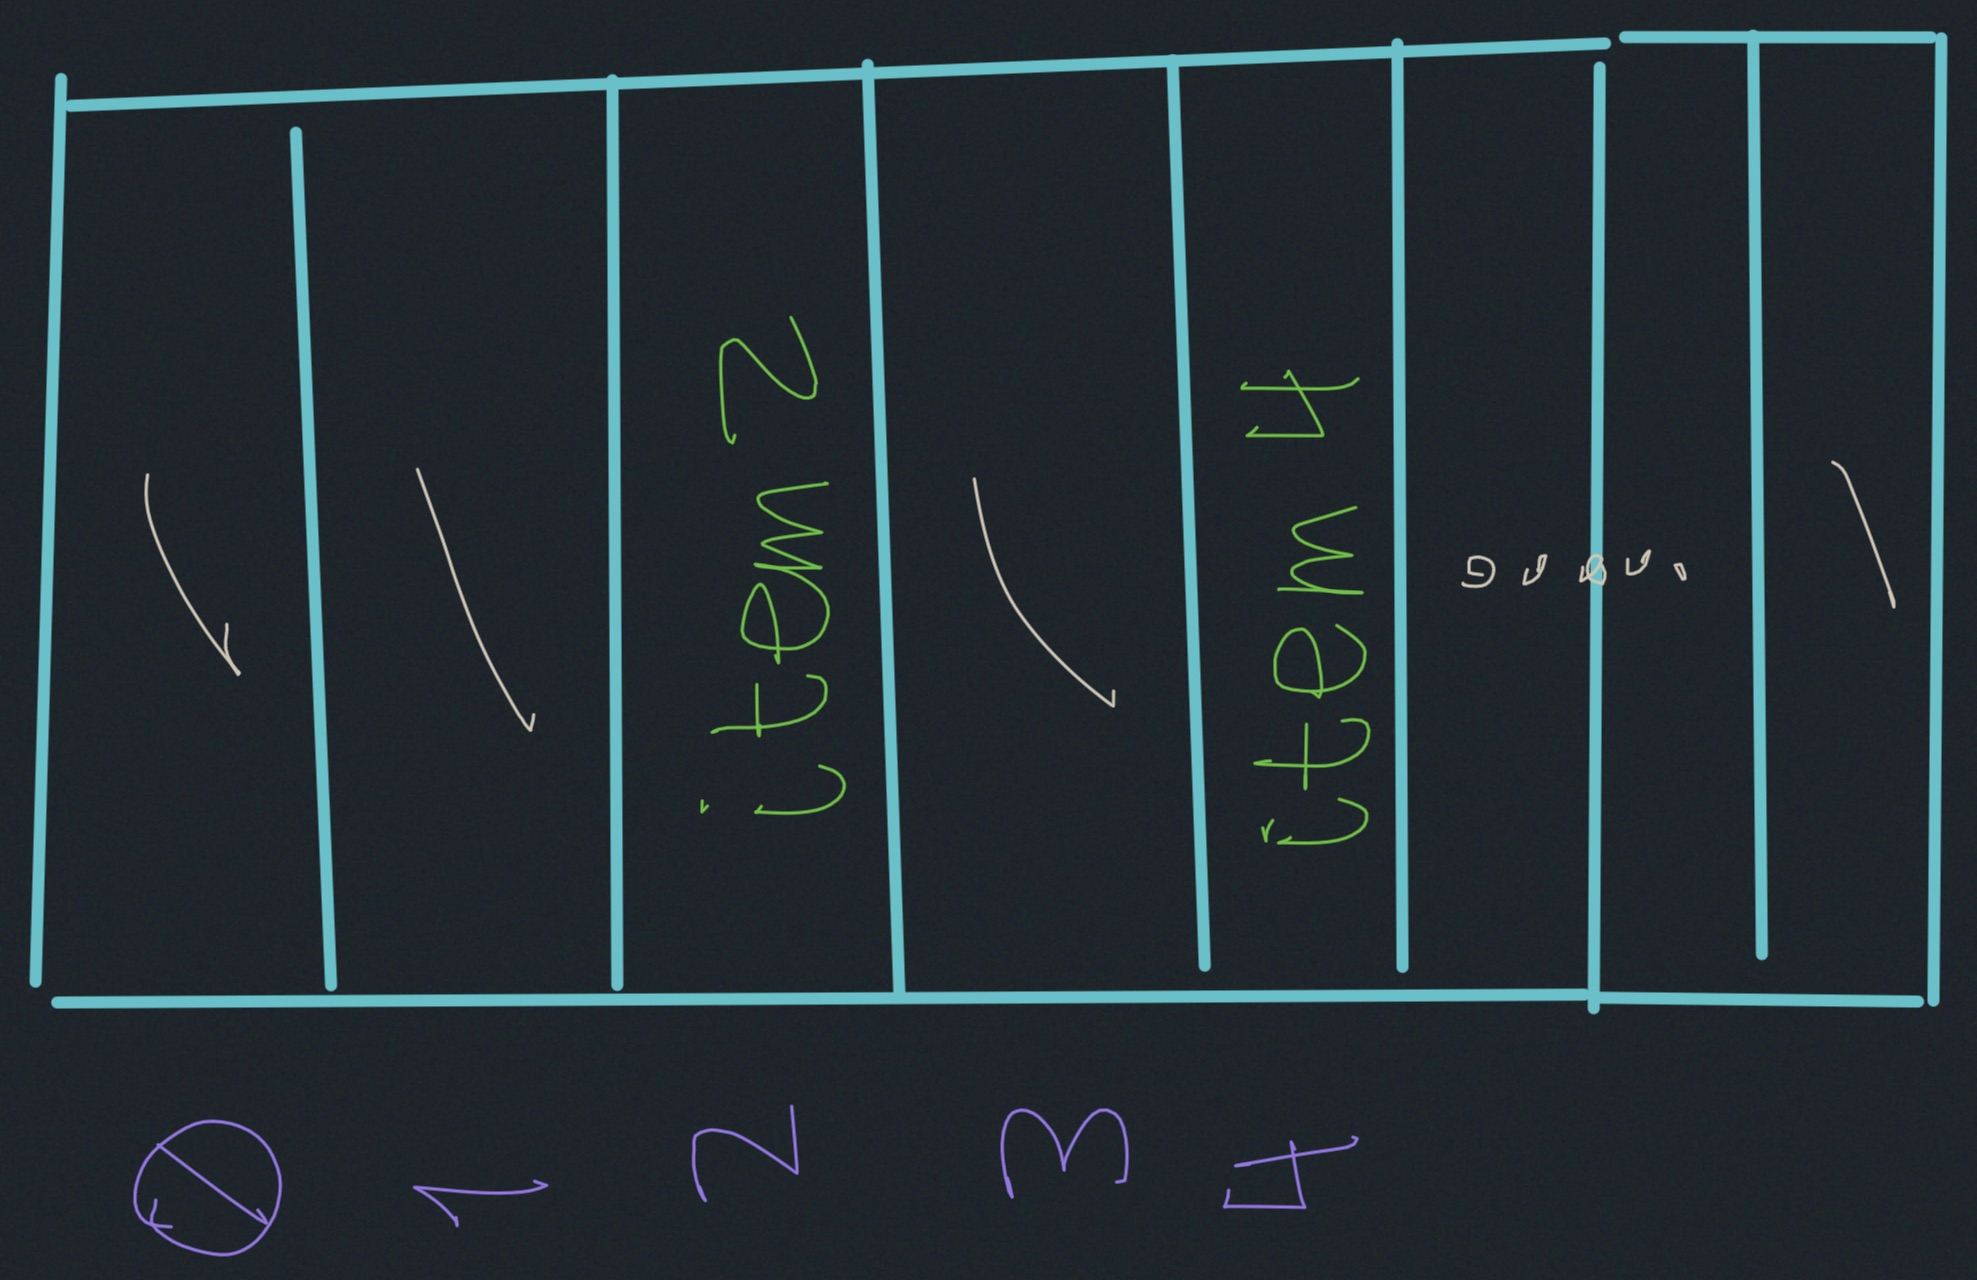 0
1
2 item 2
3
4 item 4